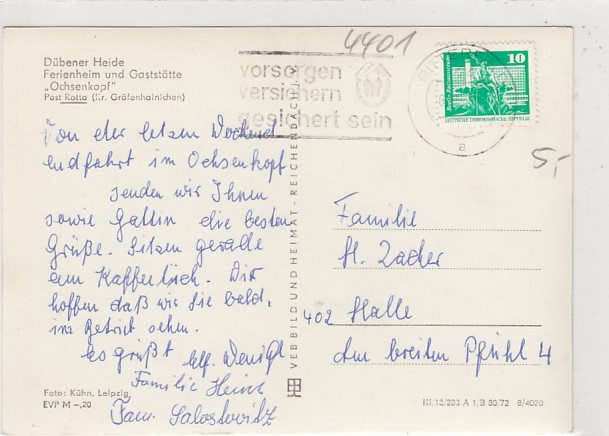 4401
Dübener Heide
Ferienheim und Gaststätte
„Ochsenkopf"
Post Rotta (Kr. Gräfenhainichen)
vorsorgen
versichern
gesichert sein
10
DEUTSCHE DEMOKRATISCHE REPUBLIK
a
5,-
Von der letzen Wochend
endfahrt im Ochsenkopf
senden wir Ihnen
sowie Gattin die besten
Grüße. Sitzen gerade
am Kaffeetisch. Wir
hoffen daß wir Sie bald,
im Betrieb sehen.
Es grüßt
Familie
Fam.
VEB BILD UND HEIMAT · REICHENBACH
Familie
H. Zacher
402 Halle
Am breiten Pfühl 4
Foto: Kühn, Leipzig
EVP M –,20
III/18/203 A 1, B 80/72 8/4020